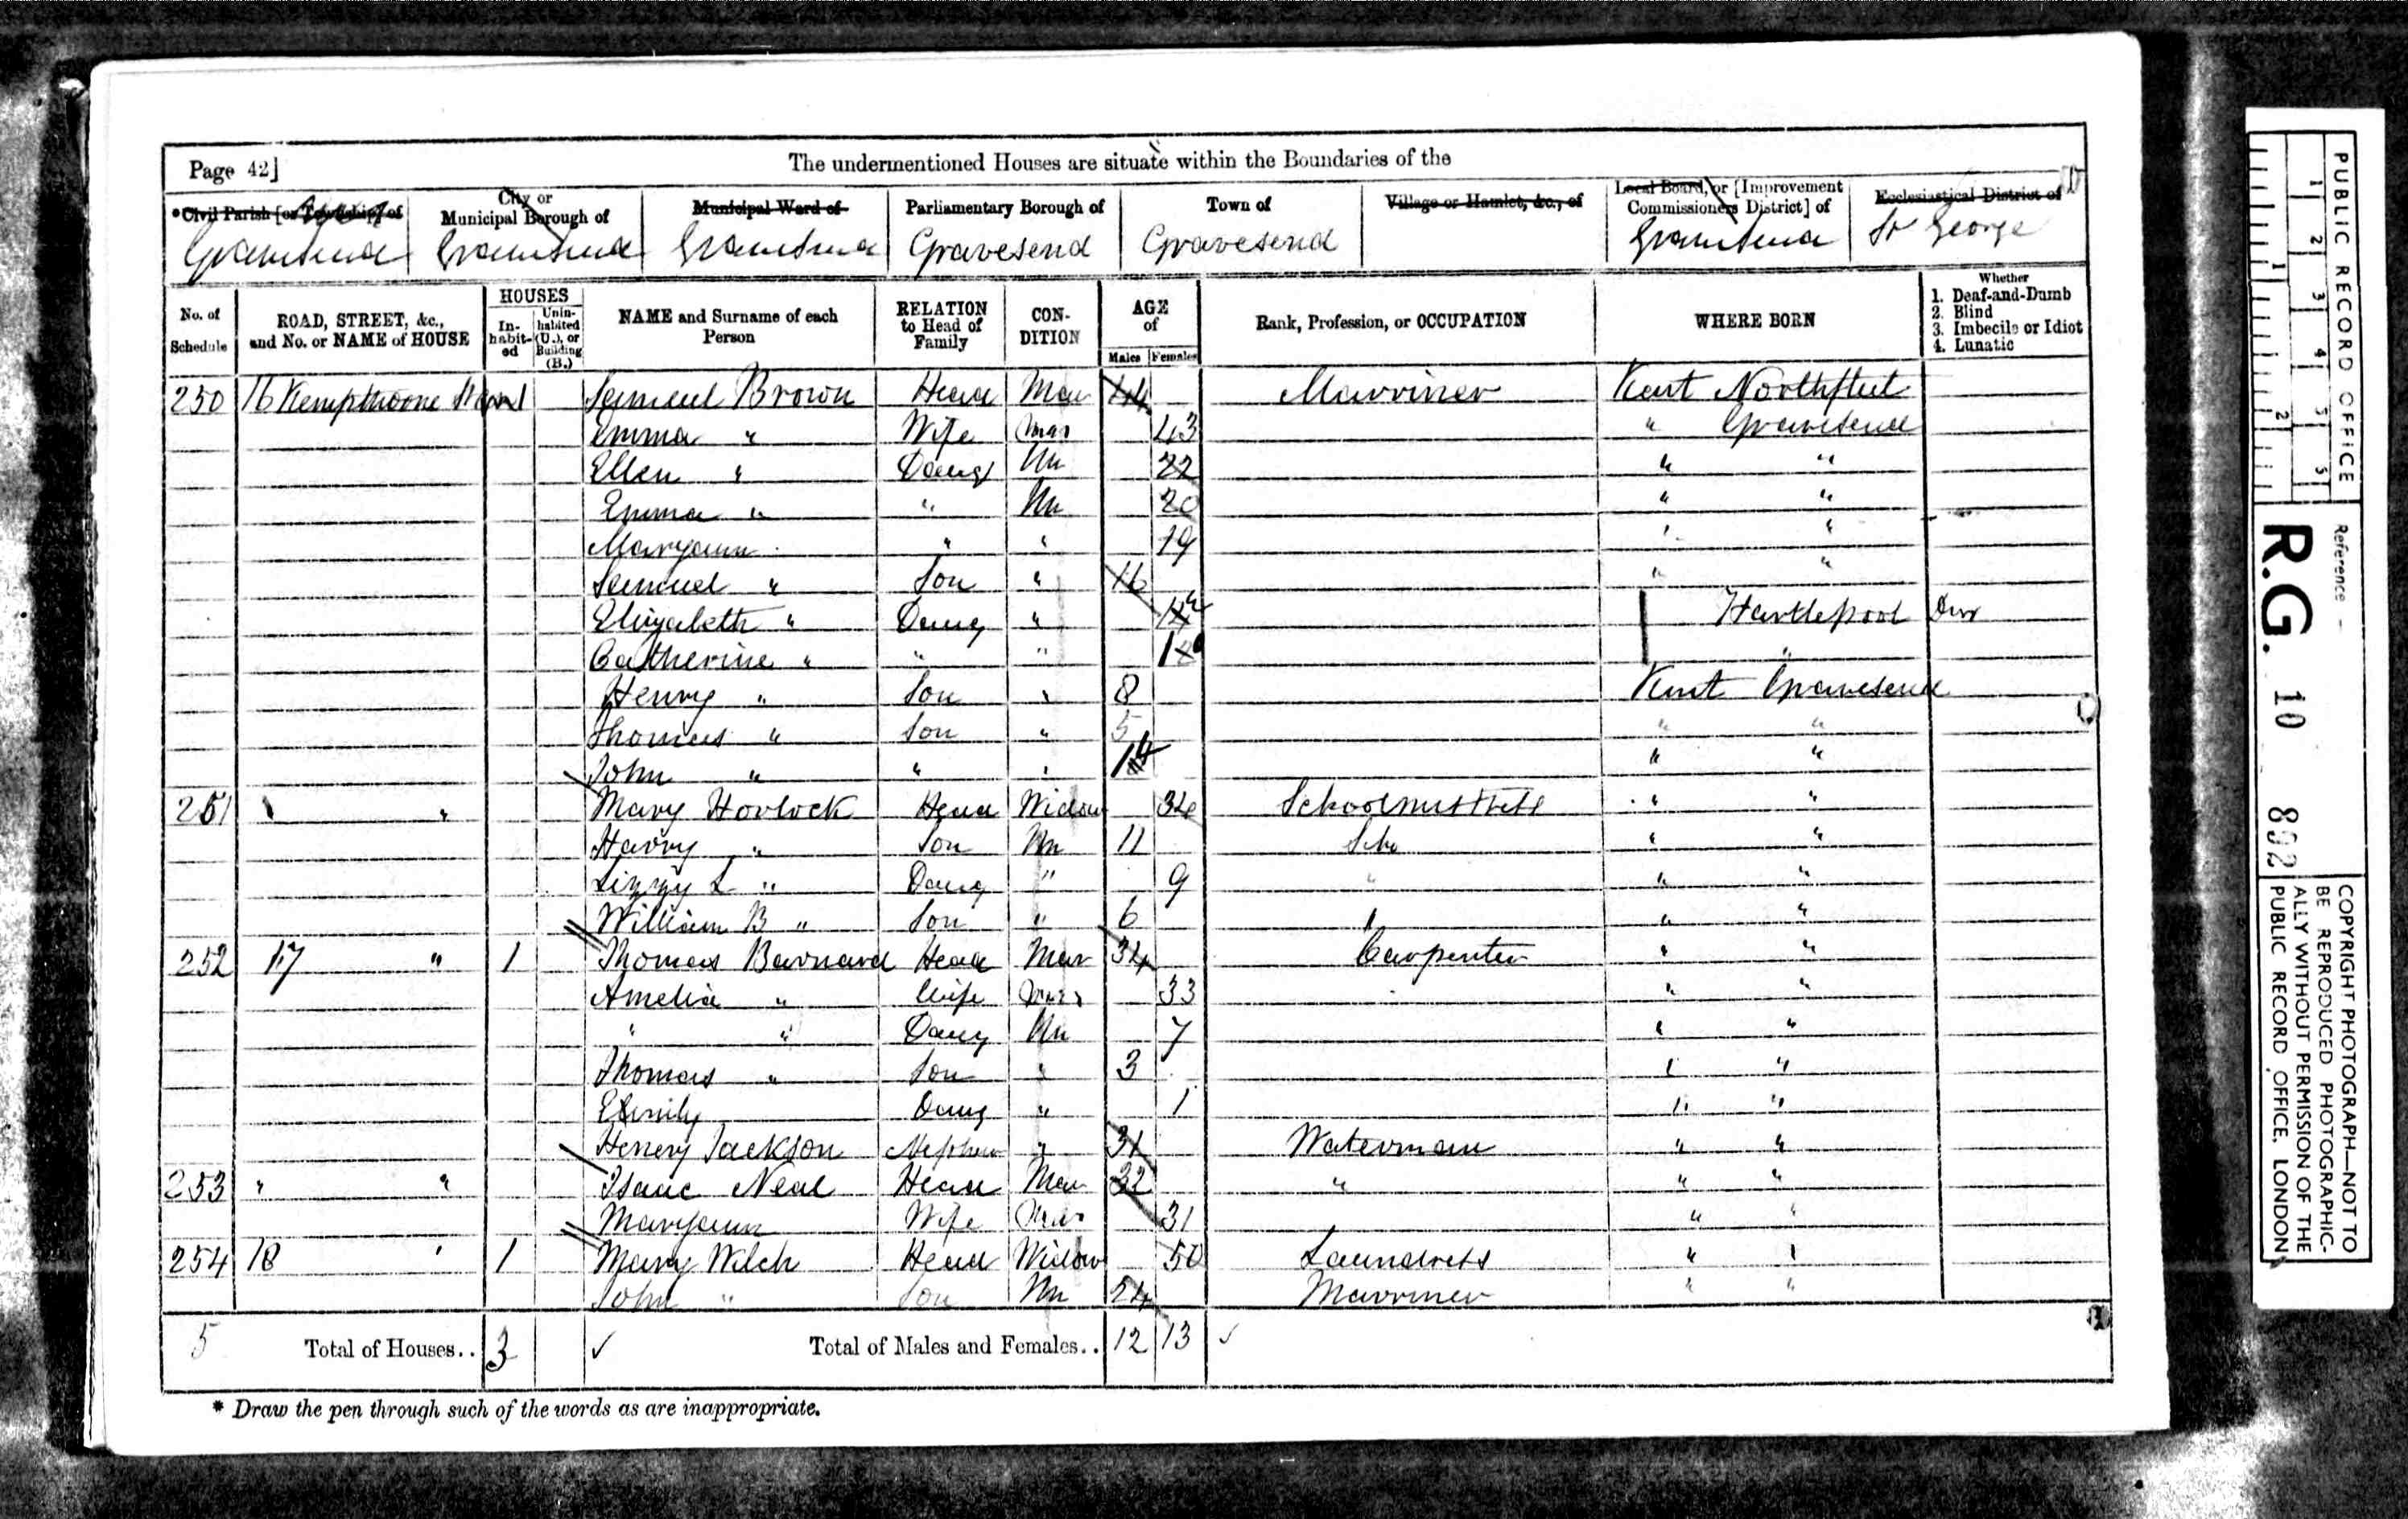 Page 42]
The undermentioned Houses are situate within the Boundaries of the
*Civil Parish [or Township] of
City or Municipal Borough of
Municipal Ward of
Parliamentary Borough of
Town of
Village or Hamlet, &c., of
Local Board, or [Improvement Commissioners District] of
Ecclesiastical District of
Gravesend Gravesend Gravesend Gravesend Gravesend Gravesend St George
No. of Schedule
ROAD, STREET, &c., and No. or NAME of HOUSE
HOUSES
In-habit-ed
Unin-habited (U.), or Building (B.)
NAME and Surname of each Person
RELATION to Head of Family
CON-DITION
AGE of
Males Females
Rank, Profession, or OCCUPATION
WHERE BORN
Whether
1. Deaf-and-Dumb
2. Blind
3. Imbecile or Idiot
4. Lunatic
250 16 Kempthorne Street 1 Samuel Brown Head Mar 44 Marriner Kent Northfleet
Emma " Wife Mar 43 " Gravesend
Ellen " Daug Un 22 " "
Emma " " Un 20 " "
Maryann " " 19 " "
Samuel " Son " 16 " "
Elizabeth " Daug " Hartlepool Dur
Catherine " " " "
Henry " Son " 8 Kent Gravesend
Thomas " Son " 5 " "
John " " " " "
251 " " Mary Horlock Head Widow 34 Schoolmistress " "
Harry " Son Un 11 Scho " "
Lizzy L " Daug " 9 " " "
William B " Son " 6 " " "
252 17 " 1 Thomas Barnard Head Mar 34 Carpenter " "
Amelia " Wife Mar 33 " "
" " Daug Un 7 " "
Thomas " Son " 3 " "
Emily Daug " 1 " "
Henery Jackson Nephew " 31 Waterman " "
253 " " Isaac Neal Head Mar 32 " " "
Maryann Wife Mar 31 " "
254 18 " 1 Mary Welch Head Widow 50 Laundress " "
John " Son Un 24 Marriner " "
5 Total of Houses.. 3 Total of Males and Females.. 12 13
* Draw the pen through such of the words as are inappropriate.
PUBLIC RECORD OFFICE
1 2 3 4 5 5
1 2
Reference -
R.G. 10 892
COPYRIGHT PHOTOGRAPH—NOT TO
BE REPRODUCED PHOTOGRAPHIC-
ALLY WITHOUT PERMISSION OF THE
PUBLIC RECORD OFFICE, LONDON